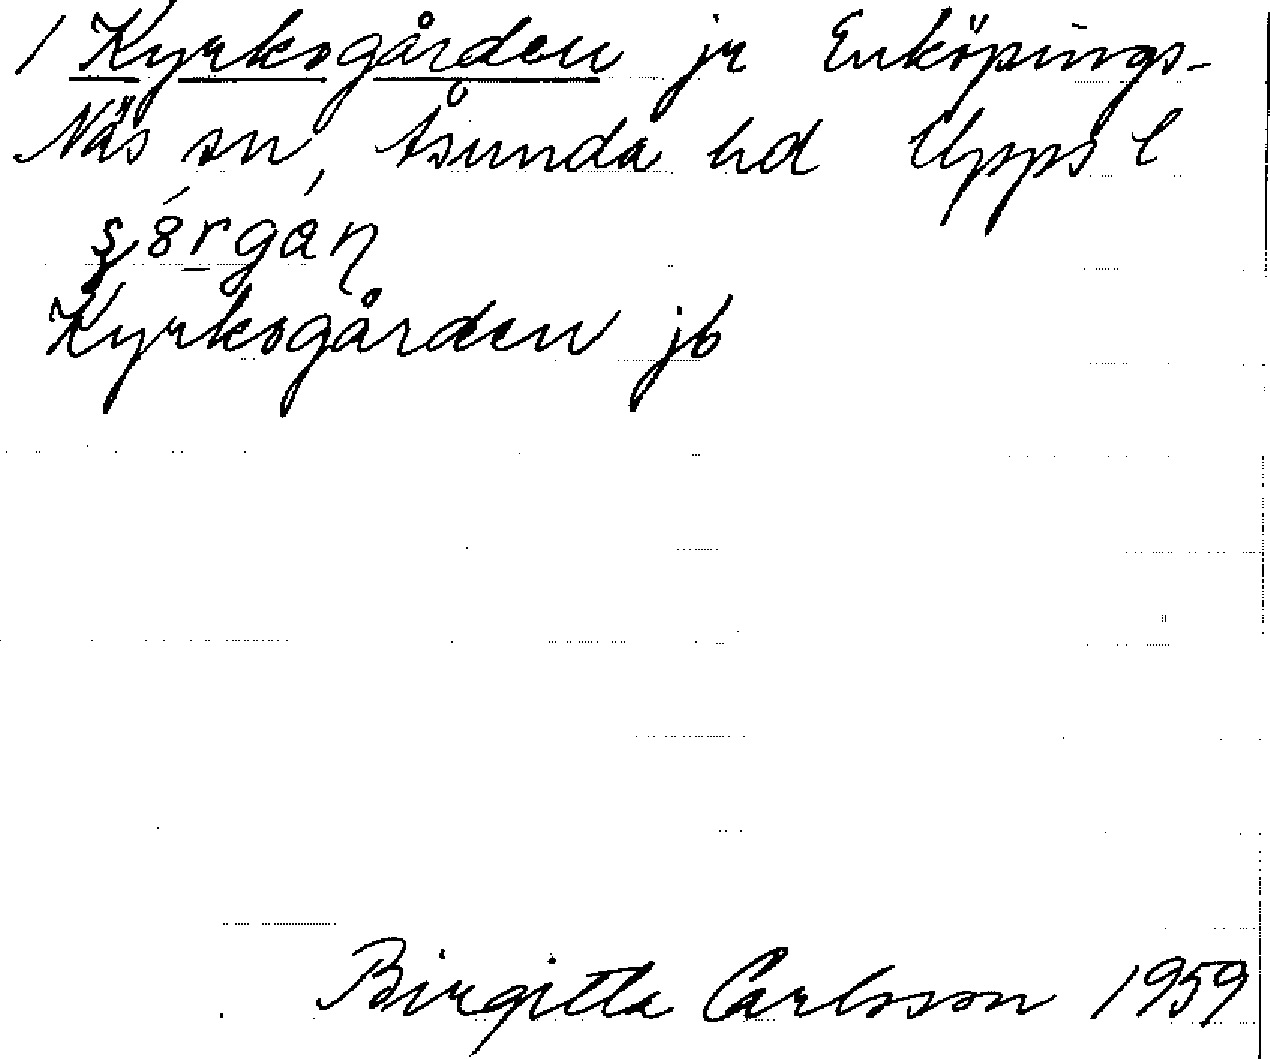 / Kyrksgården jr Enköpings-
Näs sn, Åsunda hd Upps l
Kyrksgården jb
Birgitta Carlsson 1959